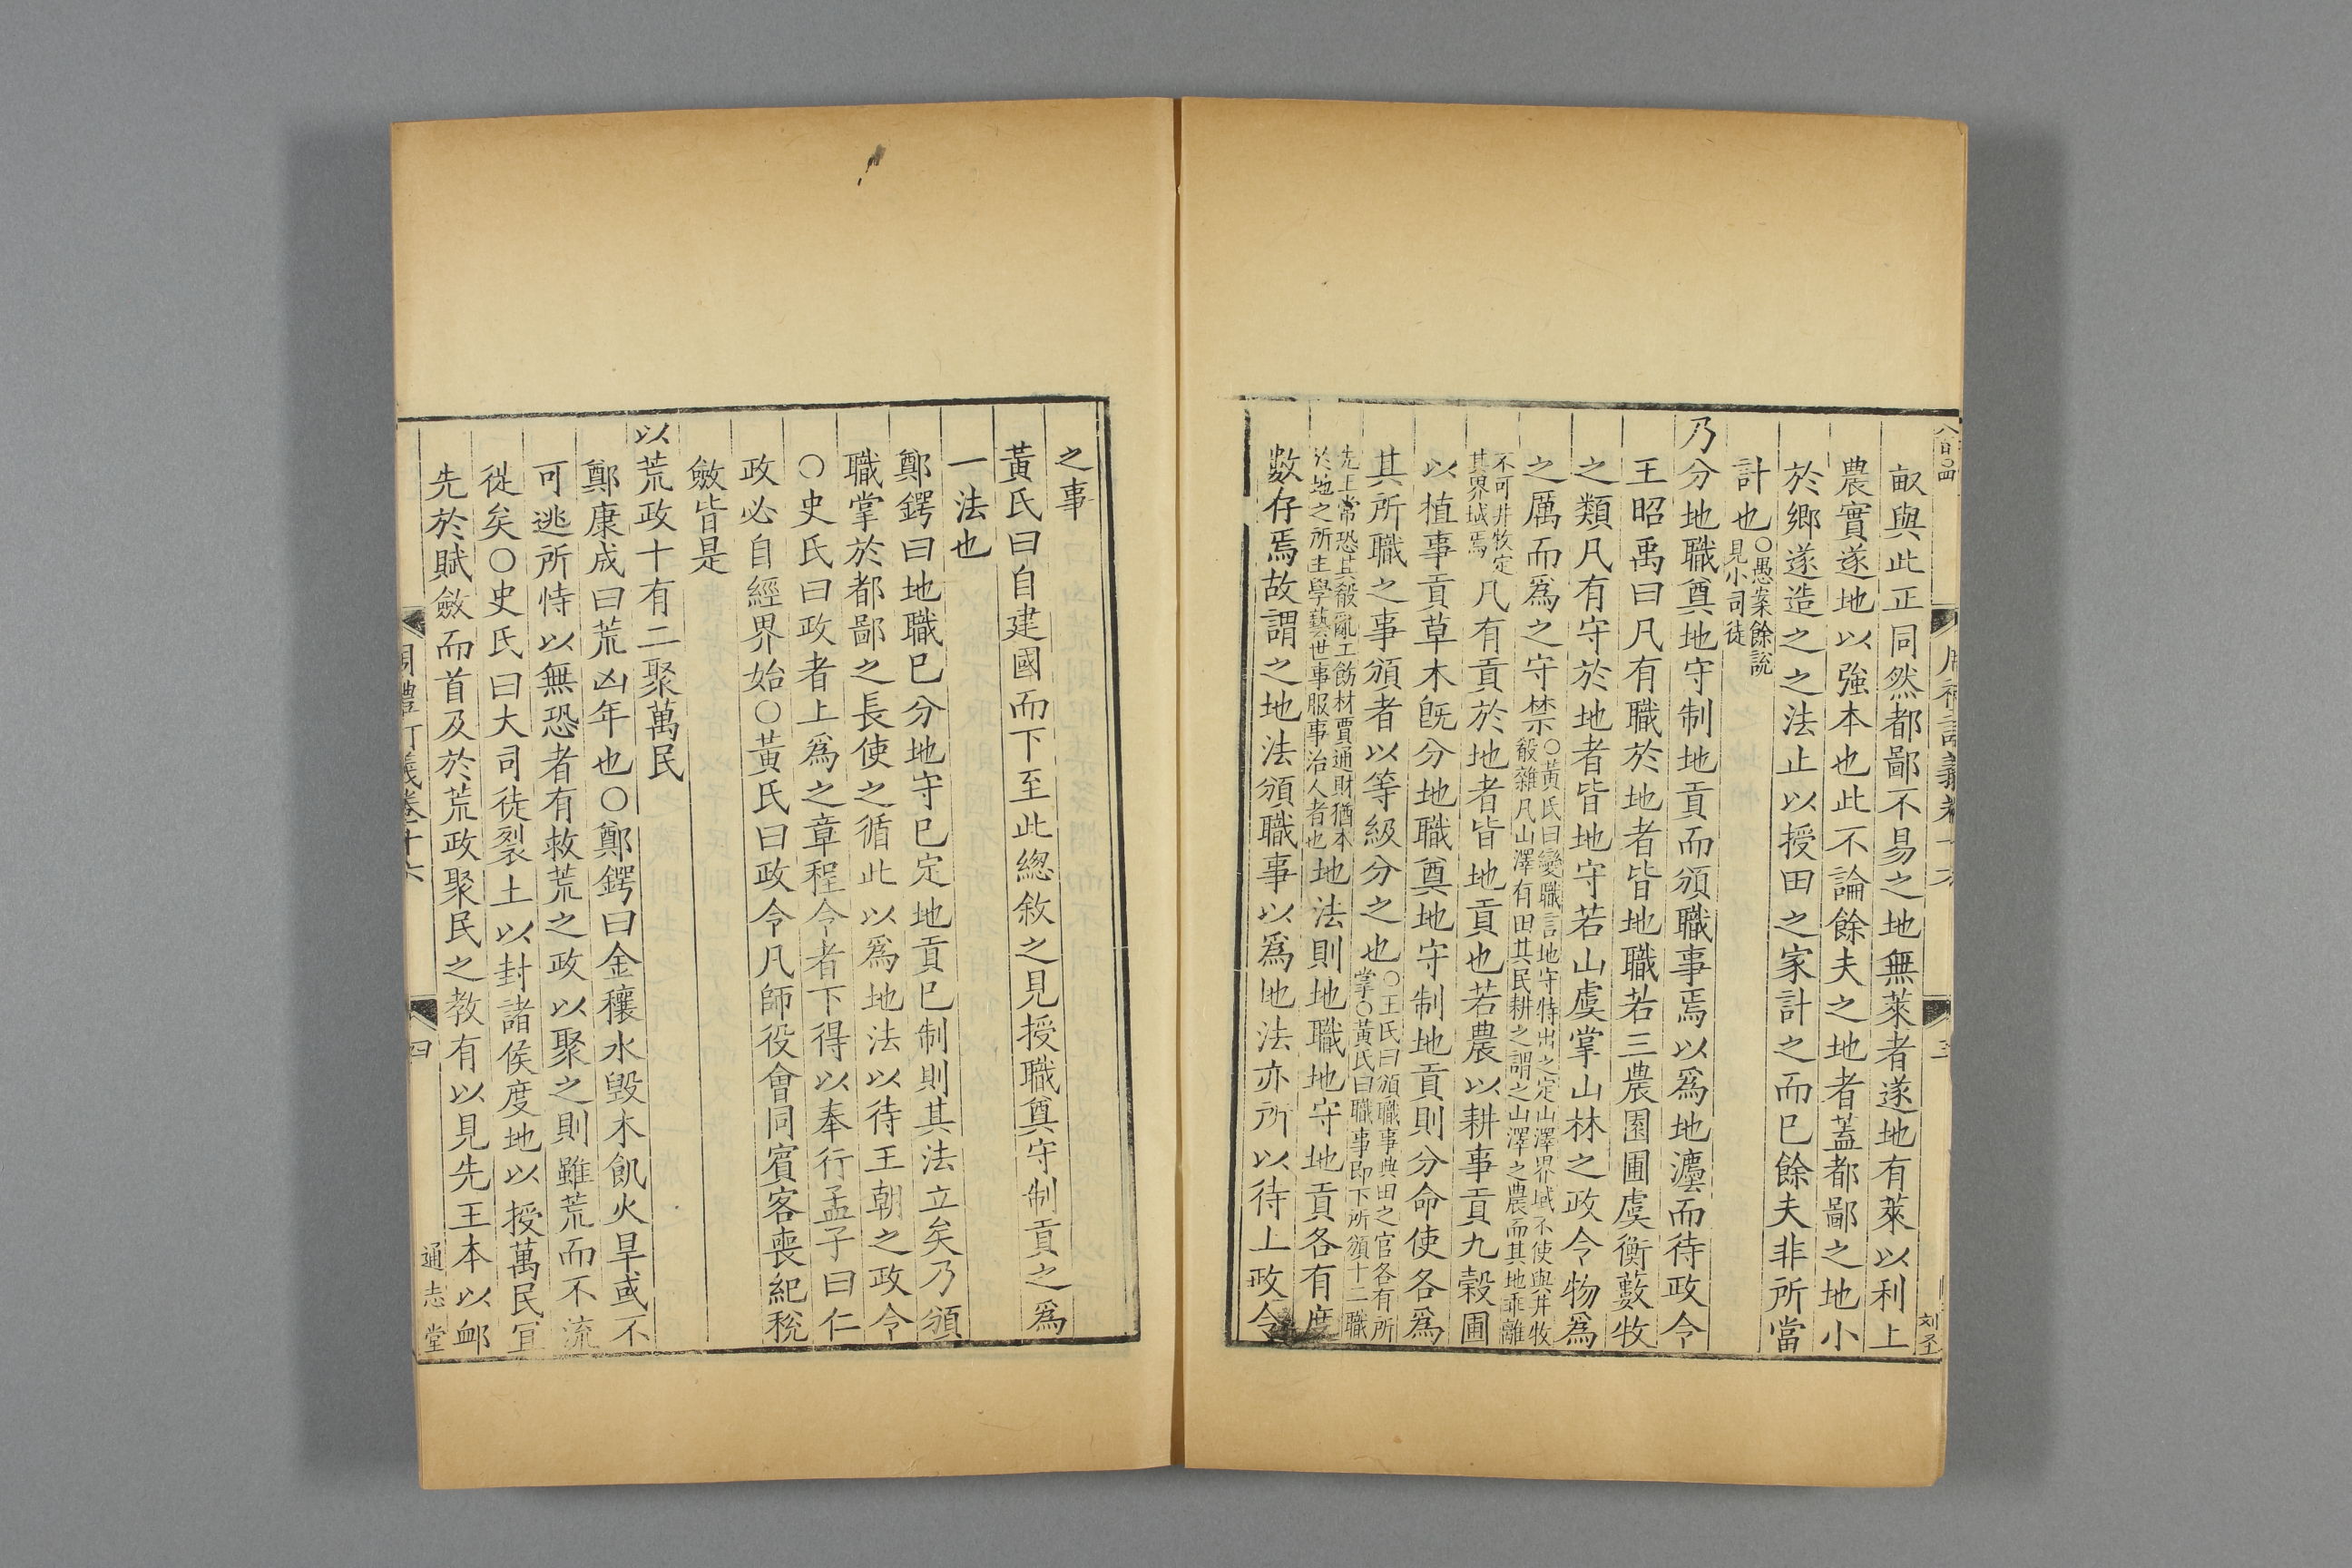 畝與此正同然都鄙不易之地無萊者遂地有萊以利上
農實遂地以強本也此不論餘夫之地者蓋都鄙之地小
於鄉遂造之之法止以授田之家計之而已餘夫非所當
計也○愚案餘說見小司徒
乃分地職奠地守制地貢而頒職事焉以爲地灋而待政令
王昭禹曰凡有職於地者皆地職若三農園圃虞衡藪牧
之類凡有守於地者皆地守若山虞掌山林之政令物爲
之厲而爲之守禁○黃氏曰變職言地守特出之定山澤界域不使與井牧
殽雜凡山澤有田其民耕之謂之山澤之農而其地乖離
不可井牧定
其界域焉凡有貢於地者皆地貢也若農以耕事貢九穀圃
以植事貢草木旣分地職奠地守制地貢則分命使各爲
其所職之事頒者以等級分之也○王氏曰頒職事典田之官各有所
掌○黃氏曰職事即下所頒十二職
先王常恐其殽亂工飭材賈通財猶本
於地之所主學藝世事服事治人者也地法則地職地守地貢各有度
數存焉故謂之地法頒職事以爲地法亦所以待上政令
刘
之事
黃氏曰自建國而下至此總敘之見授職奠守制貢之爲
一法也
鄭鍔曰地職已分地守已定地貢已制則其法立矣乃頒
職掌於都鄙之長使之循此以爲地法以待王朝之政令
○史氏曰政者上爲之章程令者下得以奉行孟子曰仁
政必自經界始○黃氏曰政令凡師役會同賓客喪紀稅
斂皆是
以荒政十有二聚萬民
鄭康成曰荒凶年也○鄭鍔曰金穰水毀木飢火旱或不
可逃所恃以無恐者有救荒之政以聚之則雖荒而不流
徙矣○史氏曰大司徒裂土以封諸侯度地以授萬民宜
先於賦斂而首及於荒政聚民之教有以見先王本以卹
周禮訂義卷十六
四
通志堂